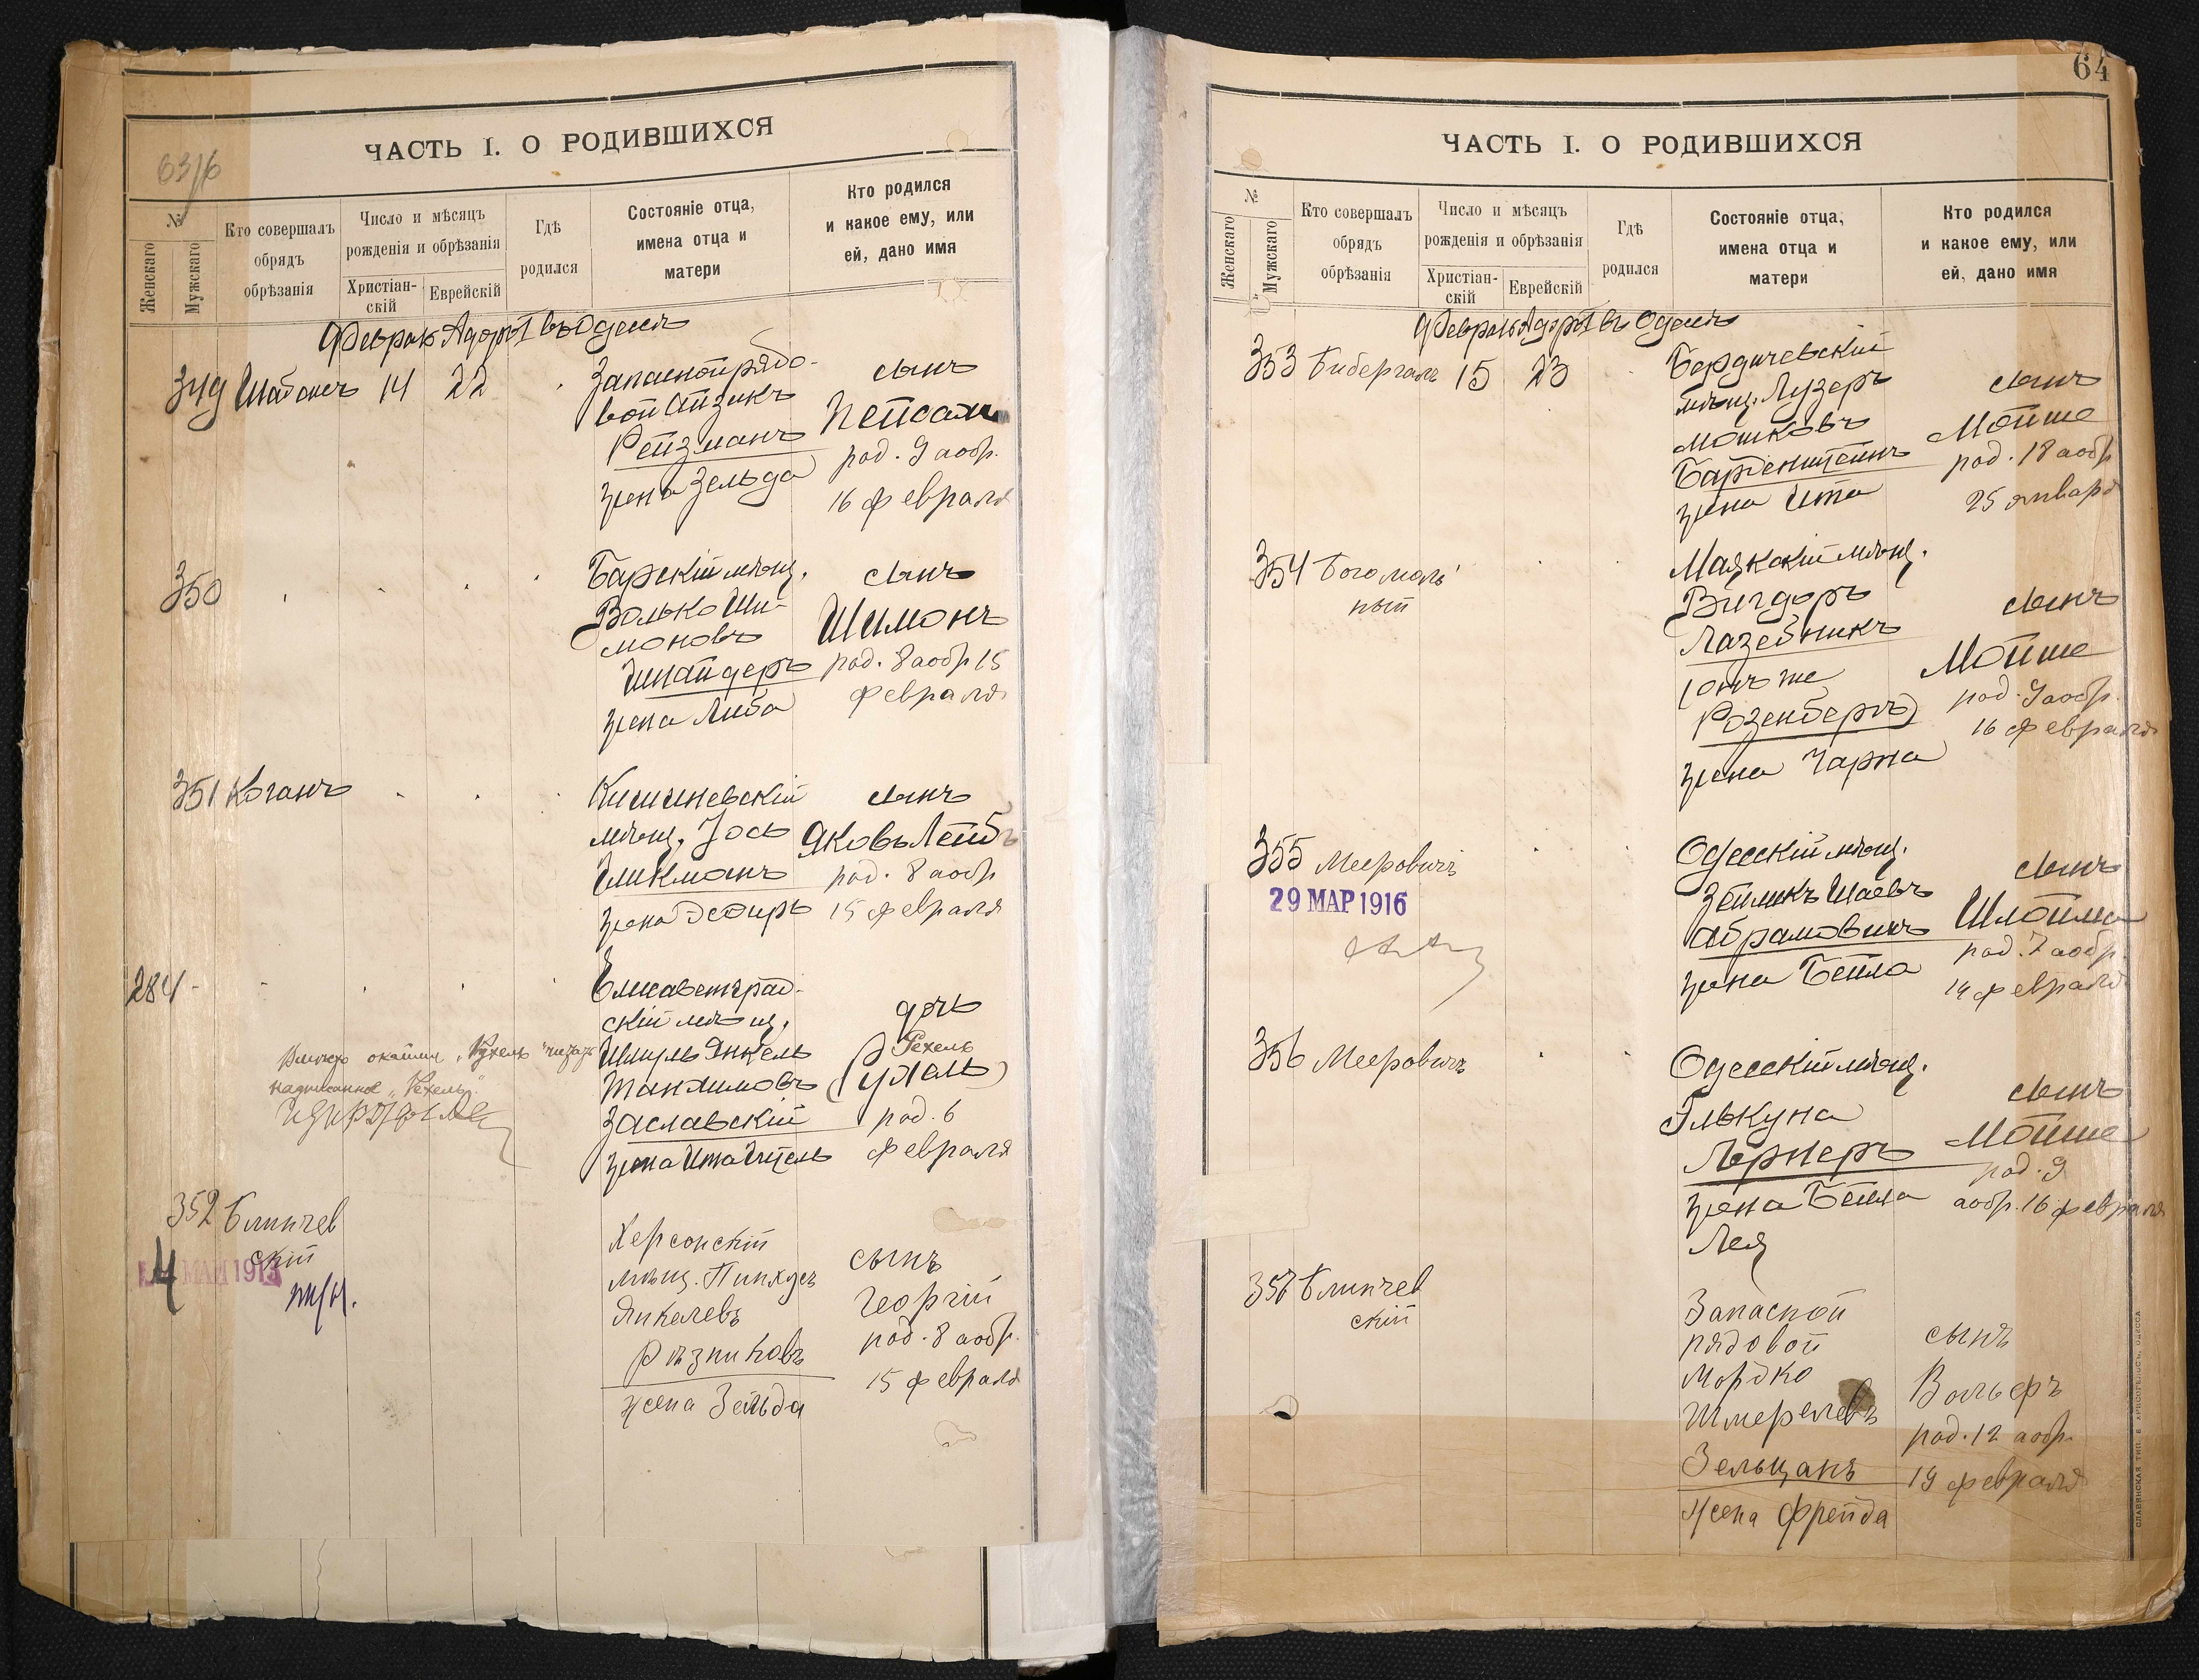 ЧАСТЬ I. О РОДИВШИХСЯ
63/6
№
Женскаго
Мужскаго
Кто совершалъ
обрядъ
обрѣзанія
Число и мѣсяцъ
рожденія и обрѣзанія
Христіан-
скій
Еврейскій
Гдѣ
родился
Состояніе отца,
имена отца и
матери
Кто родился
и какое ему, или
ей, дано имя
Февраль Адоръ I въ Одессѣ
349 Шабонъ 14 22
Запасной рядо-
вой Айзикъ
Рейзманъ
жена Зельда
сынъ
Нейсахъ
род. 9 а обр.
16 февраля
350
Барскій мѣщ.
Волько Ши-
моновъ
Шнайдеръ
жена Либа
сынъ
Шимонъ
род. 8 а обр 15
февраля
351 Коганъ
Кишиневскій
мѣщ. Іось
Гликманъ
жена Эсфирь
сынъ
Яковъ Лейбъ
род. 8 а обр
15 февраля
284
Елисаветград-
скій мѣщ.
Шмуль Янкель
Танхимовъ
Заславскій
жена Ита
дочь
Рехель
(Ухель)
род. 6
февраля
надписанное „Рехель“
352 Блинчев
скій
4 МАЙ 1913
Херсонскій
мѣщ. Пинхусъ
Янкелевъ
Рѣзниковъ
жена Зельда
сынъ
Георгій
род. 8 а обр.
15 февраля
64
ЧАСТЬ I. О РОДИВШИХСЯ
№
Женскаго
Мужскаго
Кто совершалъ
обрядъ
обрѣзанія
Число и мѣсяцъ
рожденія и обрѣзанія
Христіан-
скій
Еврейскій
Гдѣ
родился
Состояніе отца,
имена отца и
матери
Кто родился
и какое ему, или
ей, дано имя
Февраль Адоръ I въ Одессѣ
353 Бибергалъ 15 23
Бердичевскій
мѣщ. Лузеръ
Мошковъ
Барденштейнъ
жена Ита
сынъ
Мойше
род. 18 а обр
25 января
354 Богомоль
ный
Маякскій мѣщ.
Вигдоръ
Лазебникъ
(онъ же
Розенбергъ)
жена Чарна
сынъ
Мойше
род. 9 а обр.
16 февраля
355 Мееровичъ
29 МАР 1916
Одесскій мѣщ.
Зейликъ Шаевъ
Абрамовичъ
жена Бейла
сынъ
Шлойма
род. 7 а обр.
14 февраля
356 Мееровичъ
Одесскій мѣщ.
Элькуна
Лернеръ
жена Бейла
Лея
сынъ
Мойше
род. 9
а обр. 16 февраля
357 Блинчев
скій
Запасной
рядовой
Мордко
Шмерелевъ
Зельцанъ
жена Фрейда
сынъ
Вольфъ
род. 12 а обр.
19 февраля
СЛАВЯНСКАЯ ТИП. Е. ХРИСОГЕЛОСЪ, ОДЕССА